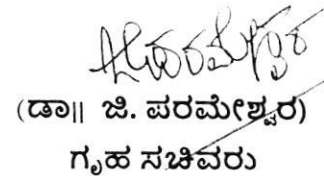 (ಡಾ|| ಜಿ. ಪರಮೇಶ್ವರ)
ಗೃಹ ಸಚಿವರು